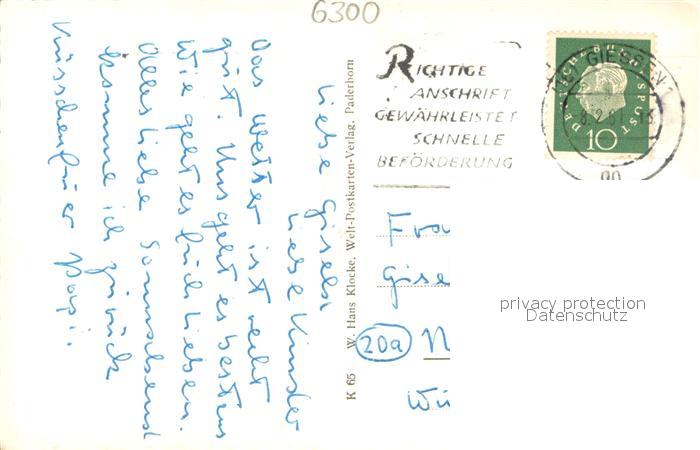 6300
Liebe Gisela
Liebe Kinder
Das Wetter ist recht
gut. Uns geht es bestens
Wie geht es Euch Lieben.
Alles Liebe Sonnabend
komme ich zurück
Küsschen für Papi.
K 65 W. Hans Klocke, Welt-Postkarten-Verlag, Paderborn
RICHTIGE
ANSCHRIFT
GEWÄHRLEISTET
SCHNELLE
BEFÖRDERUNG
DEUTSCHE BUNDESPOST
10
GIESSEN 1
Fra
Gise
20a N
Wü
privacy protection
Datenschutz